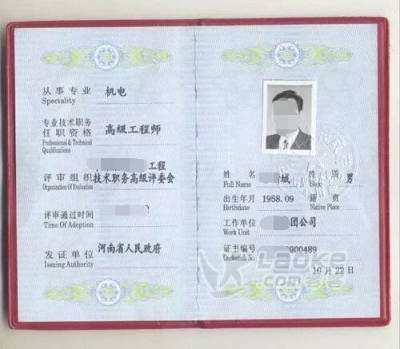 从事专业 机电
Speciality
专业技术职务
任职资格 高级工程师
Professional & Technical
Qualifications
工程
评审组织 技术职务高级评委会
Organization Of Evaluation
评审通过时间
Time Of Adoption
发证单位 河南省人民政府
Issuing Authority
城 性别 男
Full Name
出生年月 1958.09 籍贯
Birthdate Native Place
工作单位 团公司
Work Unit
证书编号 900489
Credentials No
10月22日
Laoke